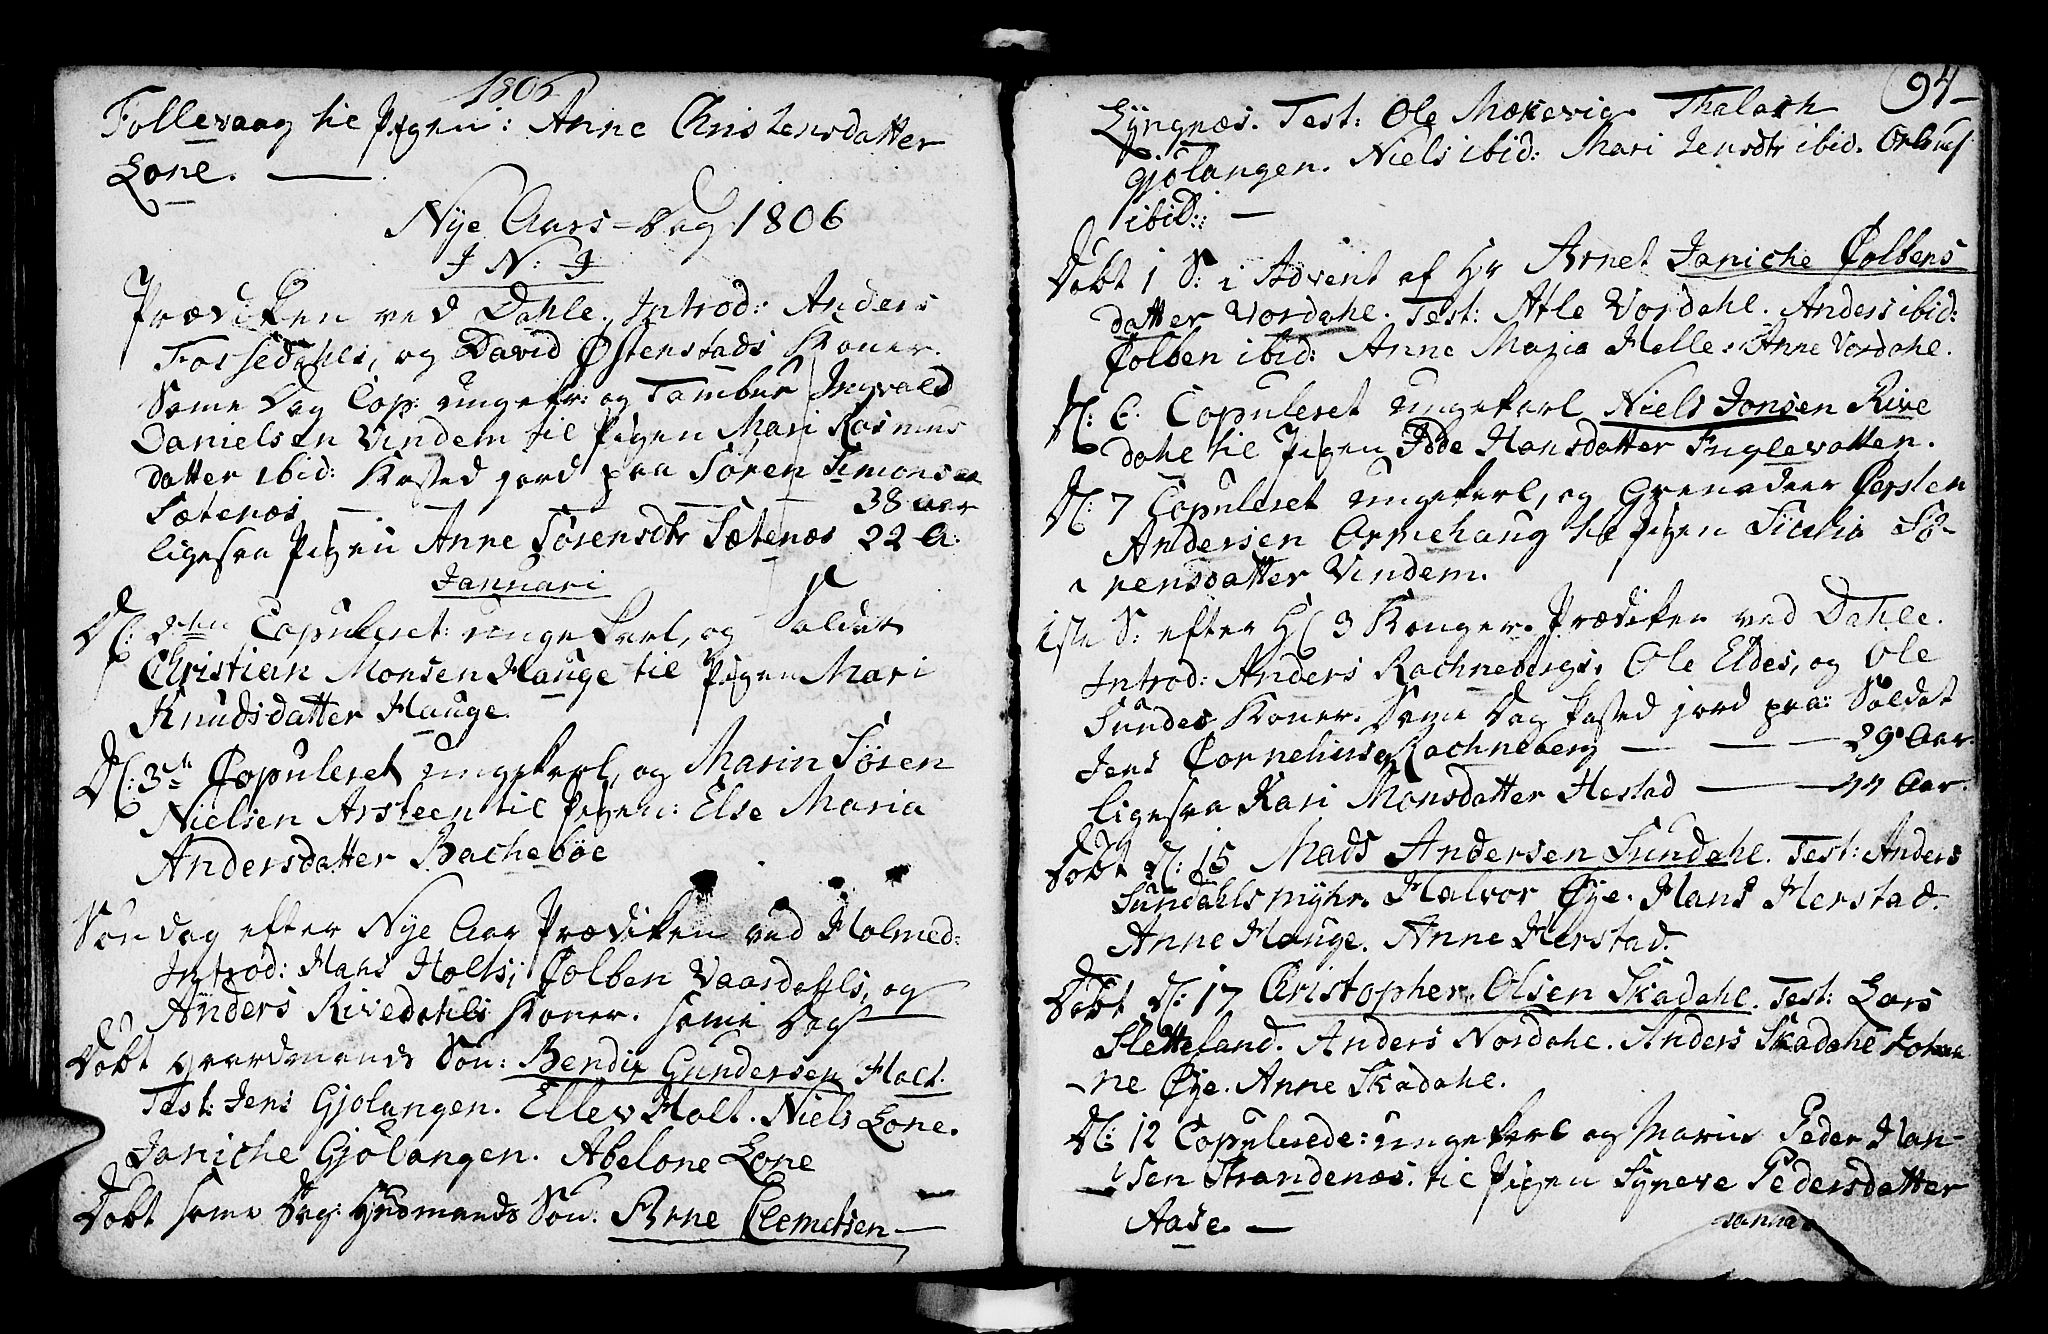 1806
Follevaag til Pigen: Anne Christensdatter
Lone. —
Nye Aars-Dag 1806
J N: J
Prædiken ved Dahle. Introd: Anders
Fossedahls, og David Østenstads Koner.
Same Dag Cop: ungekr: og Tambur Ingvald
Danielsen Vindem til Pigen Mari Rasmus
datter ibid: Kasted jord paa Søren Simonsen
Sætenæs — — — 38 aar
ligesaa Pigen Anne Sørensdtr Sætenæs 22 A:
Januari
D: 2den Copuleret: ungekarl, og Soldat
Christian Monsen Hauge til Pigen Mari
Knudsdatter Hauge.
D: 3de Copuleret ungekarl, og Marin Søren
Nielsen Arsteen til Pigen: Else Maria
Andersdatter Bachebøe
Søndag efter Nye Aar Prædiken ved Holmed:
Introd: Hans Holts, Colben Vaardahls, og
Anders Rivedahls Koner. Same Dag
Døbt gaardmands Søn: Bendix Gundersen Holt.
Test: Jens Gjølangen. Ellev Holt. Niels Lone.
Janiche Gjølangen. Abelone Lone
Døbt same Dag: Huusmands Søn: Arne Clemetsen —
94
Lyngnæs. Test: Ole Mækevig. Thalach
Gjølangen. Niels ibid: Mari Jensdtr ibid.
ibid: —
Døbt 1 S: i Advent af Hr Arnet Janiche Colbens
datter Vordahl. Test: Atle Vordahl. Anders ibid:
Colben ibid: Anne Maria Helle: Anne Vordahl.
D: 6. Copuleret ungekarl Niels Jonsen Rive
dahl til Pigen Ode Hansdatter Fuglevatten.
D: 7 Copuleret ungekarl, og Grenadeer Carsten
Andersen Ormehaug til Pigen Sicilia Sø-
rensdatter Vindem.
1ste S: efter H 3 Konger. Prædiken ved Dahle.
Introd: Anders Rachnebergs, Ole Eldes, og Ole
Sundes Koner. Same Dag kasted jord paa: Soldat
Jens Cornelinsen Rachneberg — — — 29 Aar.
ligesaa Kari Monsdatter Hestad — — 44 Aar.
Døbt D: 15 Mads Andersen Sundahl. Test: Anders
Sundahlsmyhr. Halvor Øye. Hans Herstad.
Anne Hauge. Anne Herstad.
Døbt D: 17 Christopher Olsen Skadahl. Test: Lars
Sletteland. Anders Nordahl. Anders Skadahl Johan
ne Øye. Anne Skadahl.
D: 12 Copulerede: ungekarl og Marin Peder Han-
sen Strandenæs. til Pigen Synneve Pedersdatter
Aase. —